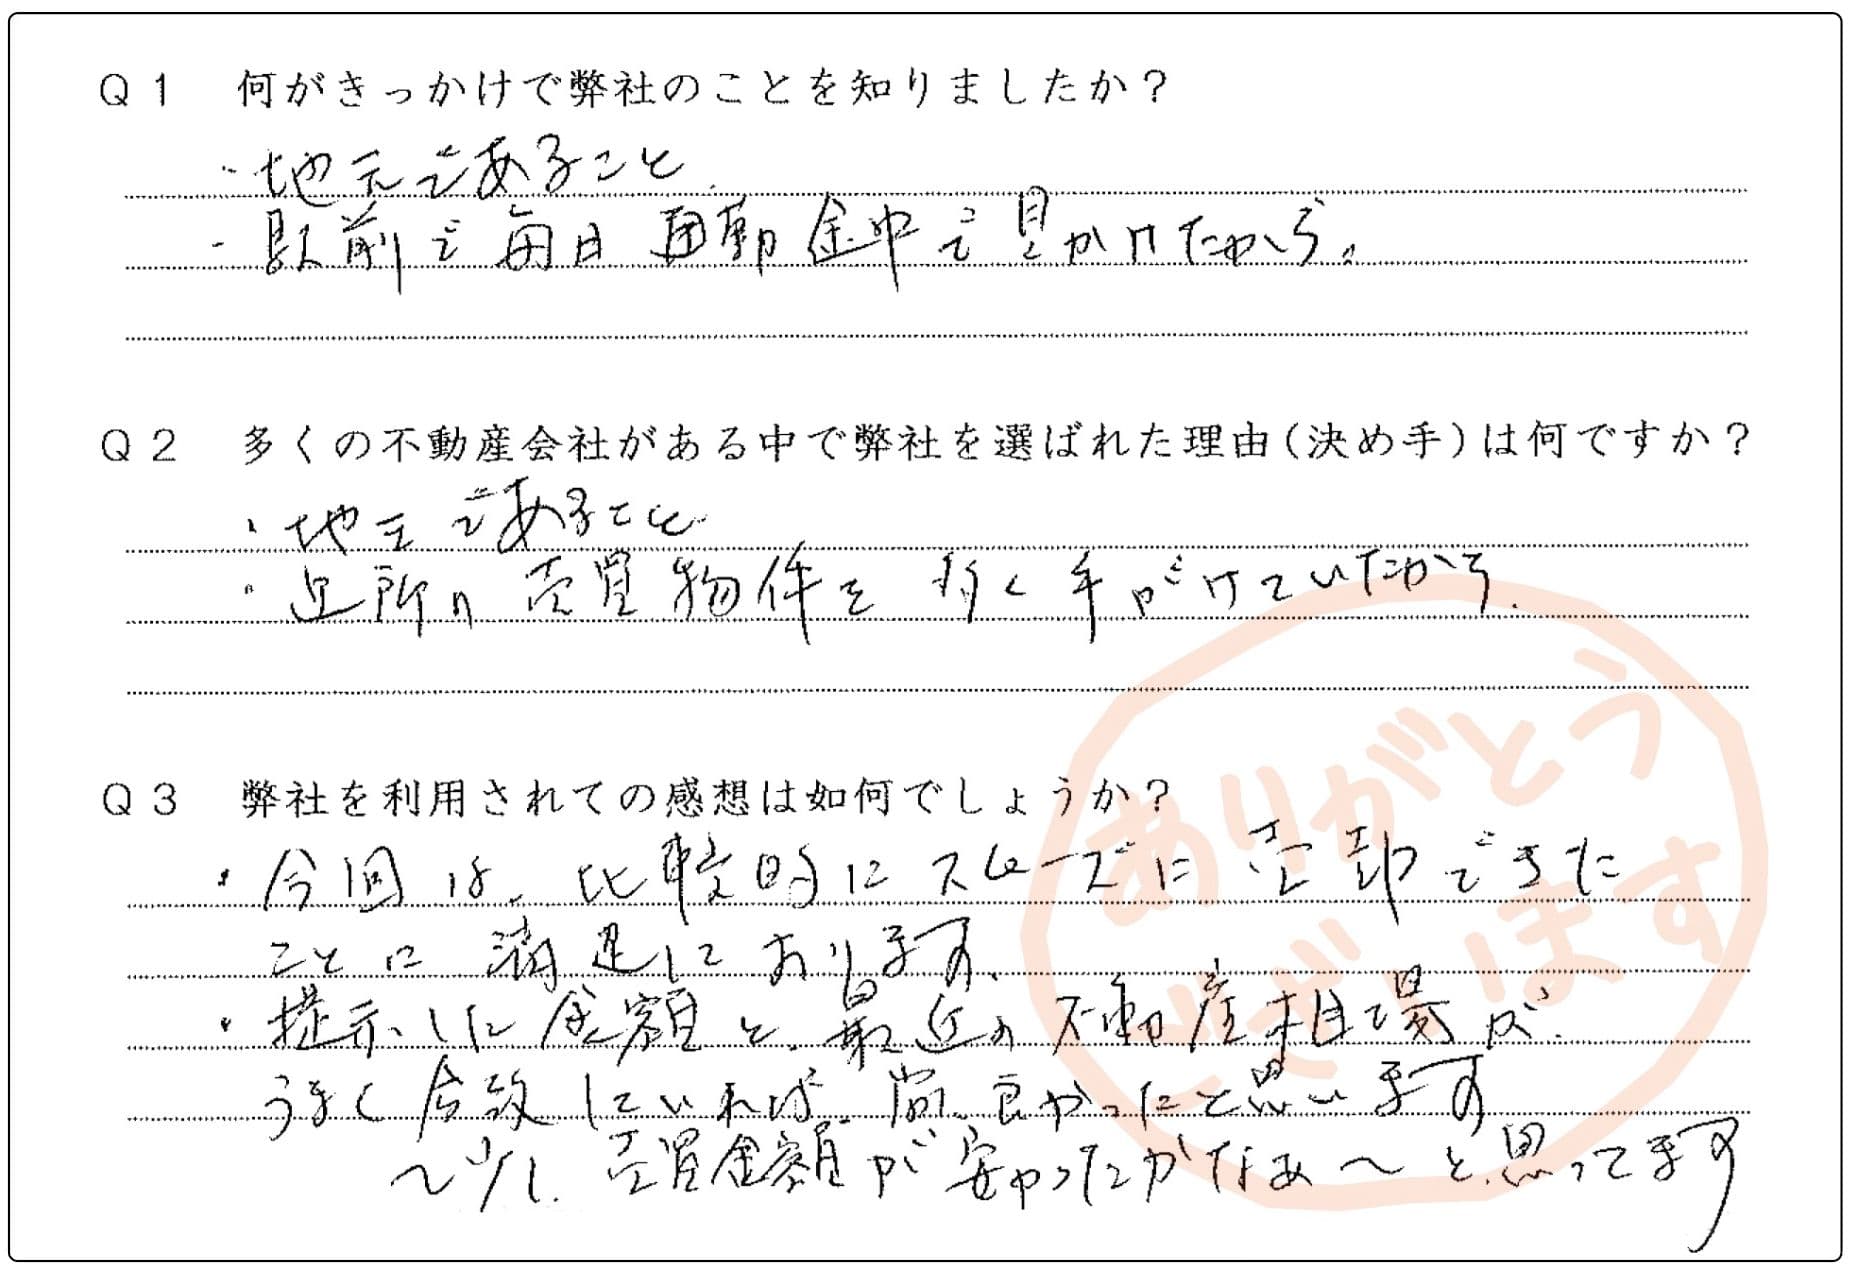 Q1 何がきっかけで弊社のことを知りましたか?
・地元であること.
・駅前で毎日通勤途中で見かけたから。
Q2 多くの不動産会社がある中で弊社を選ばれた理由(決め手)は何ですか?
・地元であること
・近所の売買物件を多く手がけていたから.
Q3 弊社を利用されての感想は如何でしょうか?
・今回は、比較的にスムーズに売却できた
ことに満足しております.
・提示した金額と、最近の不動産相場が
うまく合致していれば、尚、良かったと思います
〜少し、売買金額が安かったかなぁ〜と思ってます
ありがとう
ございます